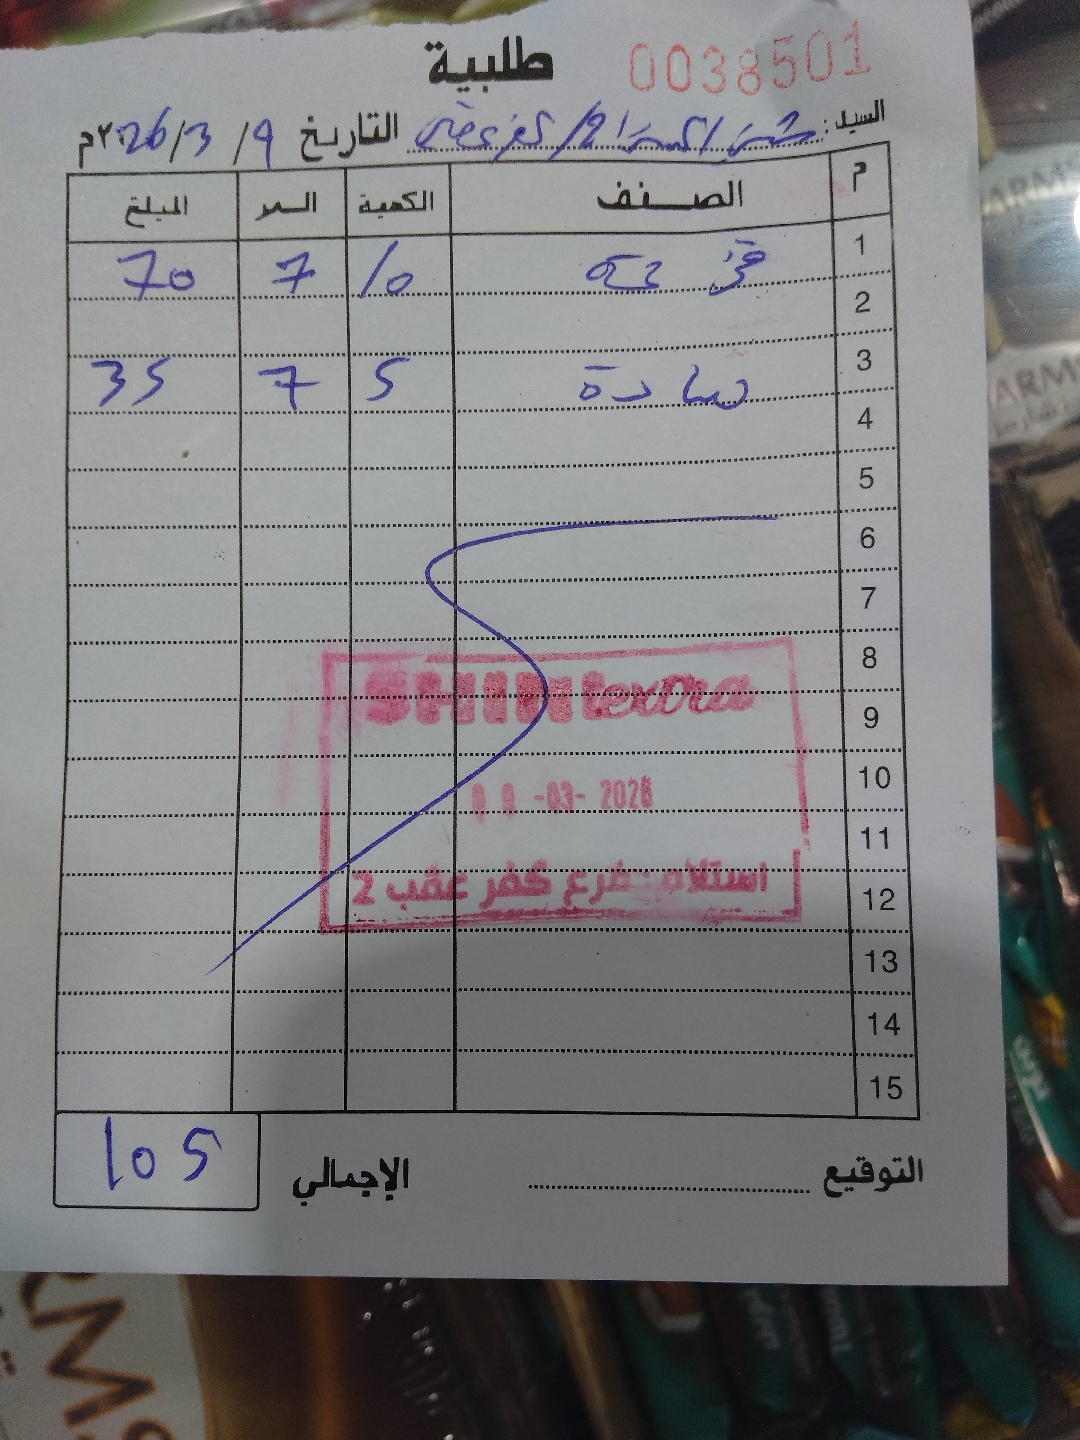 طلبية
0038501
السيد: شني اكسترا 2/ كفر عقب
التاريخ 9/3/2026م
م الصنف الكمية السعر المبلغ
1 10 7 70
2
3 سادة 5 7 35
4
5
6
7
8
SHINI extra
9
10
-03- 2026
11
12
استلام - فرع كفر عقب 2
13
14
15
التوقيع
الإجمالي 105